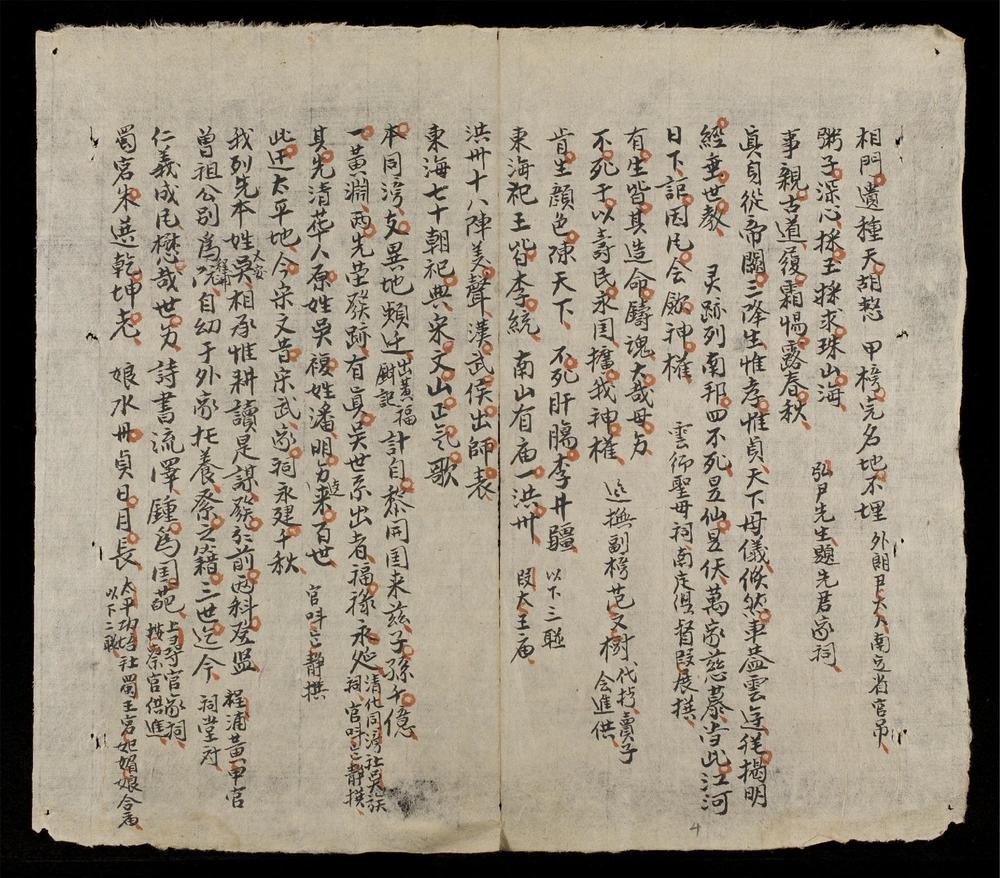 相門遺種天胡愁 甲榜完名地不埋 外朗尹大人南定省官吊
粥子深心採玉採求珠山海
事親古道履霜惕露春秋 弘尹先生題先君家祠
真自從帝闕三降生惟孝惟貞天下母儀倏然車葢雲迬従揭明
經垂世教 灵跡列南邦四不死昱仙昱伏萬家慈慕当此江河
日下記因民会飭神權 雲仰聖母祠南定俱督叚展撰
有生皆其造命鑄魂大哉母方
不死于以壽民永国攜我神權 巡撫副榜范文樹 代按賣子会進供
肯生顔色陳天下 不死肝腸李井疆 以下三聫
東海祀王皆李統 南山有庙一洪卅 叚大王庙
洪卅十八陣美聲 漢武侯出師表
東海七十朝祀典 宋文山正气歌
本同滂支異地頻迁 出黃福財記 計自黎開国来兹子孫千億
一黃淵两先茔發跡有眞吴世系出者福祿永処 清化同滂社吴族祠官呌已静撰
其先清葩人原姓吴複姓潘明方来百世 官呌已静撰
此迁太平地今宗文昔宗武家祠永建千秋
我列先本姓吳相承惟耕讀是謀發於前两科登监 程浦黃甲官
曽祖公別爲阮自幼于外家托養祭之籍三世迄今 祠堂对
仁義成民懋哉世劣 詩書流澤鍾爲国葩 官家祠 按察官供進
蜀宮朱塋乾坤老 娘水册貞日月長 太平功培社蜀王宮妃媚娘合庙 以下二聫